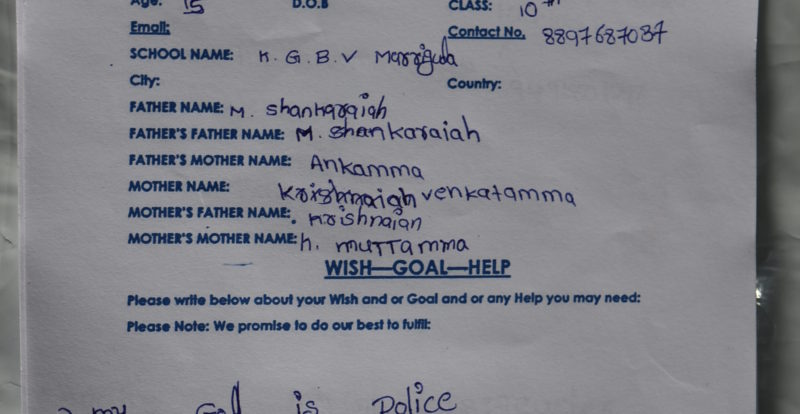 Age: 15 D.O.B CLASS: 10th
Email: Contact No. 8897687087
SCHOOL NAME: K. G. B. V Marriguda
City: Country:
FATHER NAME: M. Shankaraiah
FATHER'S FATHER NAME: M. Shankaraiah
FATHER'S MOTHER NAME: Ankamma
MOTHER NAME: Krishnaiah venkatamma
MOTHER'S FATHER NAME: Krishnaiah
MOTHER'S MOTHER NAME: h. muttamma
WISH—GOAL—HELP
Please write below about your Wish and or Goal and or any Help you may need:
Please Note: We promise to do our best to fulfil:
my is Police